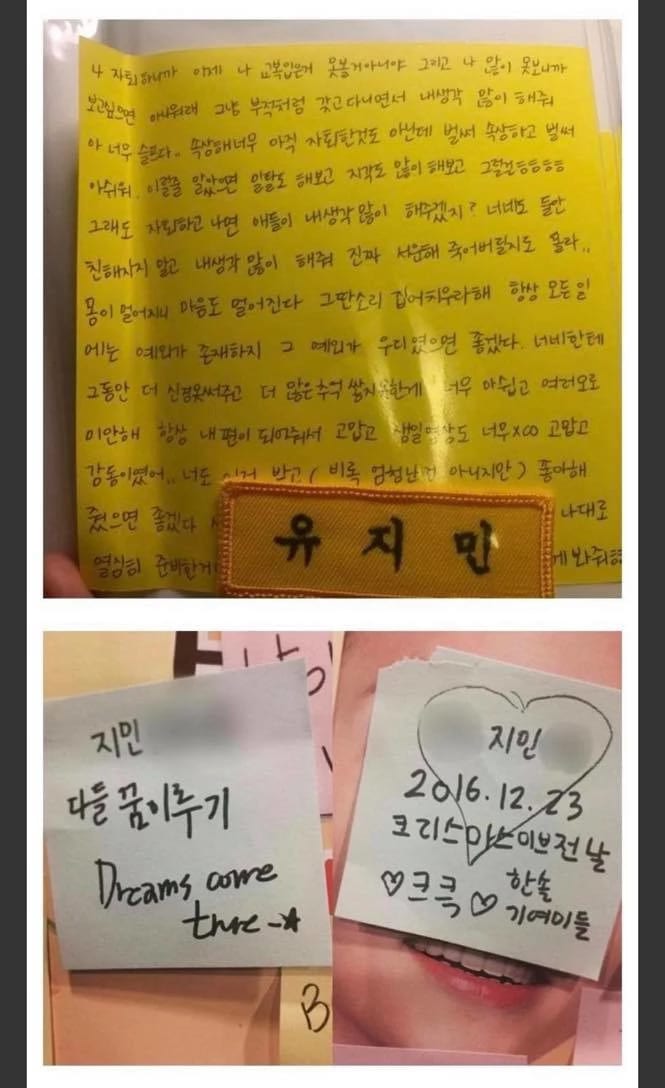 나 자퇴하니까 이제 나 교복입은거 못볼거아니야 그리고 나 많이 못보니까
보고싶으면 아쉬워해 그냥 부적처럼 갖고다니면서 내생각 많이 해줘
아 너무 슬프다.. 속상해너무 아직 자퇴한것도 아닌데 벌써 속상하고 벌써
아쉬워. 이럴줄 알았으면 일탈도 해보고 지각도 많이 해보고 그럴걸ㅎㅎㅎㅎ
그래도 자퇴하고 나면 애들이 내생각 많이 해주겠지? 너네도 둘만
친해지지 말고 내생각 많이 해줘 진짜 서운해 죽어버릴지도 몰라..
몸이 멀어지니 마음도 멀어진다 그딴소리 집어치우라해 항상 모든일
에는 예외가 존재하지 그 예외가 우리였으면 좋겠다. 너네한테
그동안 더 신경못써주고 더 많은추억 쌓지못한게 너무 아쉽고 여러모로
미안해 항상 내편이 되어줘서 고맙고 생일영상도 너무xoo 고맙고
감동이였어.. 너도 이거 받고 (비록 엄청난건 아니지만) 좋아해
줬으면 좋겠다 나대로
열심히 준비한거 봐줘ㅎㅎ
유지민
지민
다들 꿈이루기
Dreams come
true-☆
지민
2016.12.23
크리스마스이브전날
♡크큭♡ 한솔
기여미들
B